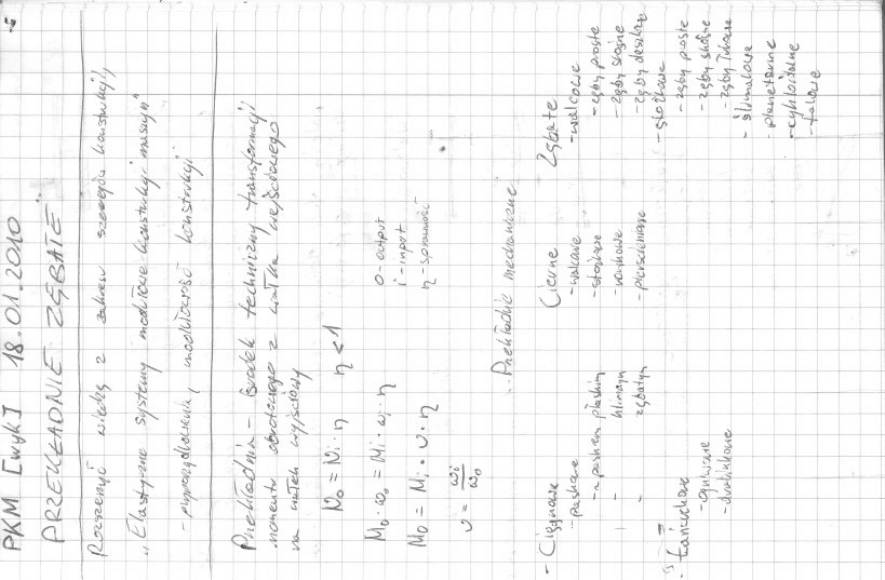 PKM [wykł] 18.01.2010
PRZEKŁADNIE ZĘBATE
Rozszerzyć wiedzę z zakresu szczegółu konstrukcji,
"Elastyczne systemy modułowe konstrukcji maszyn"
- modułowość konstrukcji
Przekładnia - środek techniczny transformacji
momentu obrotowego z wałka wejściowego
na wałek wyjściowy
No = Ni · η    η < 1
Mo · ωo = Mi · ωi · η
o - output
i - input
η - sprawność
Mo = Mi · υ · η
υ = ωi / ωo
Przekładnie mechaniczne
- Cięgnowe
- pasowe
- z paskiem płaskim
klinowym
zębatym
- Łańcuchowe
- ogniwowe
- drabinkowe
Cierne
- walcowe
- stożkowe
- pierścieniowe
Zębate
- walcowe
- zęby proste
- zęby skośne
- zęby daszkowe
- stożkowe
- zęby proste
- zęby skośne
- zęby łukowe
- ślimakowe
- planetarne
- cykloidalne
- falowe